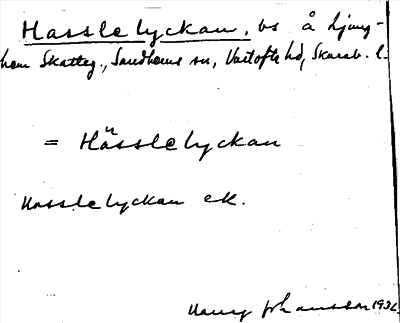 Hasslelyckan, bs å Ljung-
hem Skatteg., Sandhems sn, Vartofta hd, Skarab. l.
= Hässlelyckan
Hasslelyckan ek.
Harry Johansson 1932.